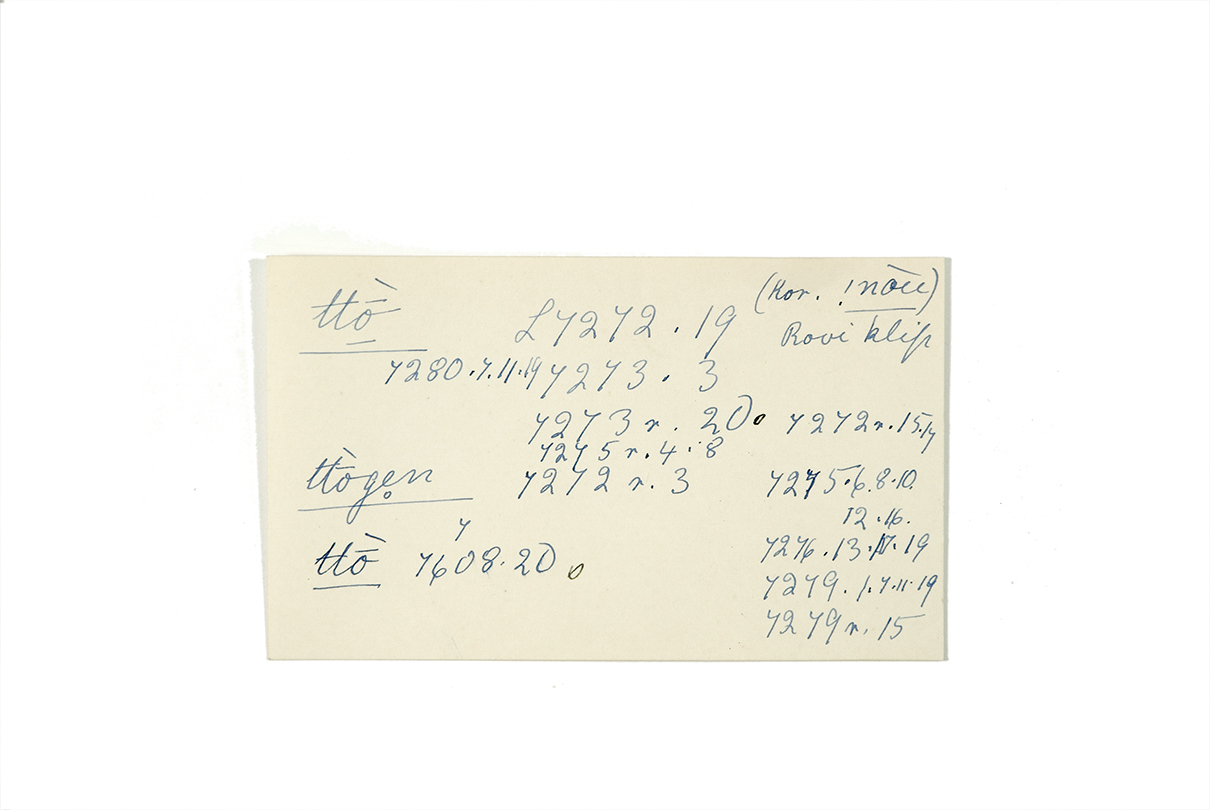 ttò̄ L7272.19 (Kor. !nòu)
Rooi klip
7280.7.11.19 7273.3
7273r.20. 7272r.15.17
7275r.4.8
ttògen 7272r.3 7275.6.8.10.
12.16.
7276.13.17.19
7
ttò̄ 7608.20
7279.1.7.11.19
7279r.15